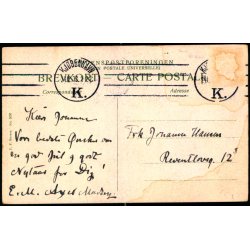 VERDENSPOSTFORENINGEN
(UNION POSTALE UNIVERSELLE)
BREVKORT CARTE POSTALE
KJØBENHAVN
K.
K.
Kære Johanne
Vor bedste Ønsker om
en god Jul og godt
Nytaar for Dig!
E. M. Axel
Frk Johanne Hansen
Reventlowsg. 12